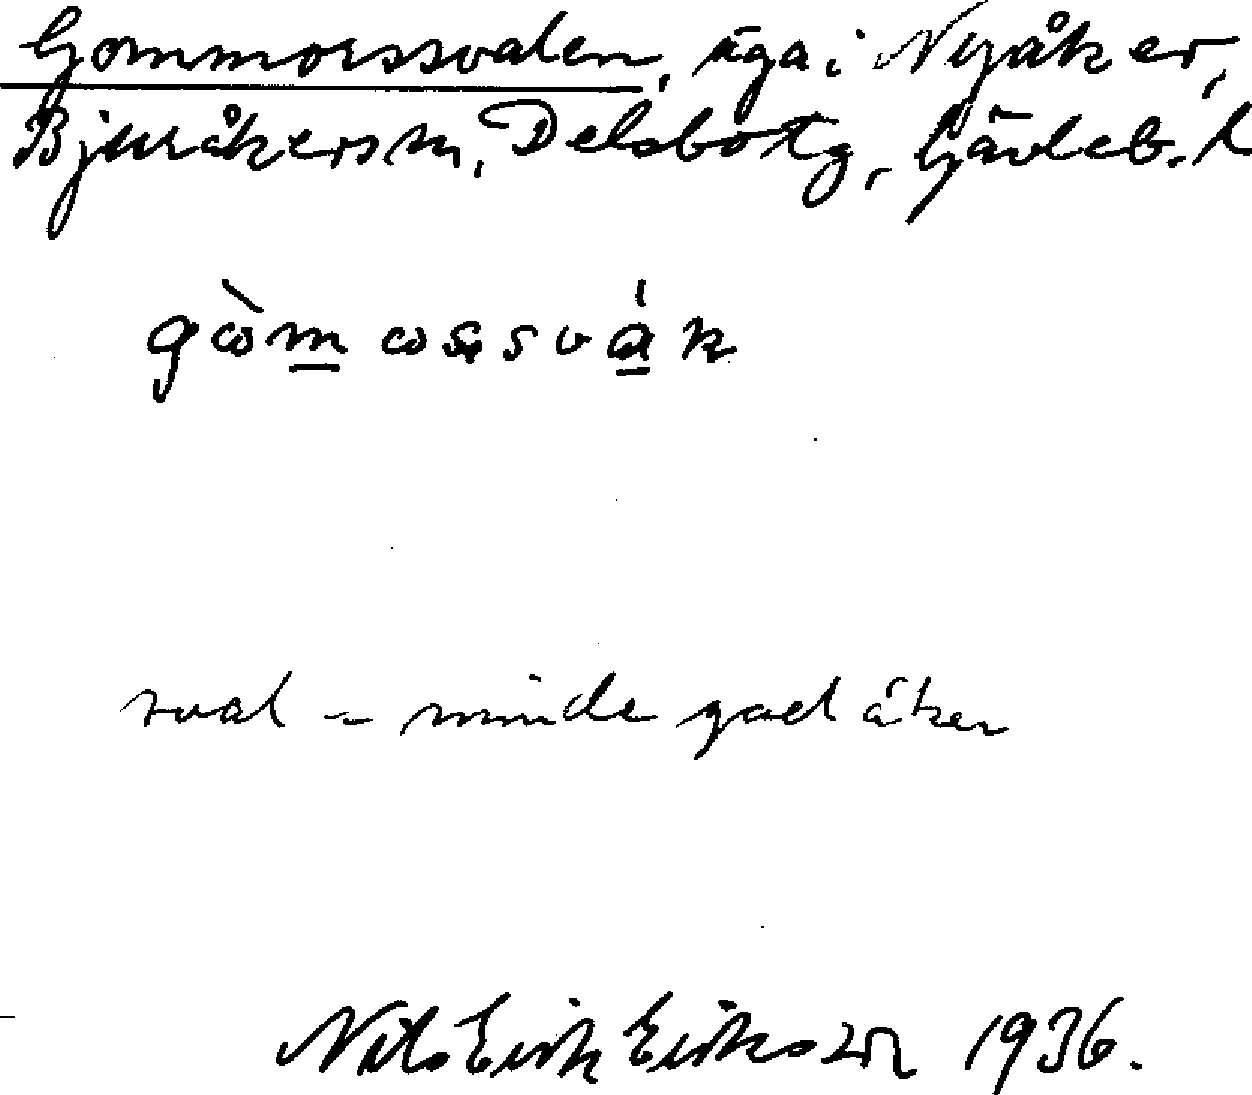 Gommorssvalen, äga i Nyåker,
Bjuråkers sn, Delsbo tg, Gävleb. l
gòmωssvák
sval = mindre god åker
Nils Erik Eriksson 1936.